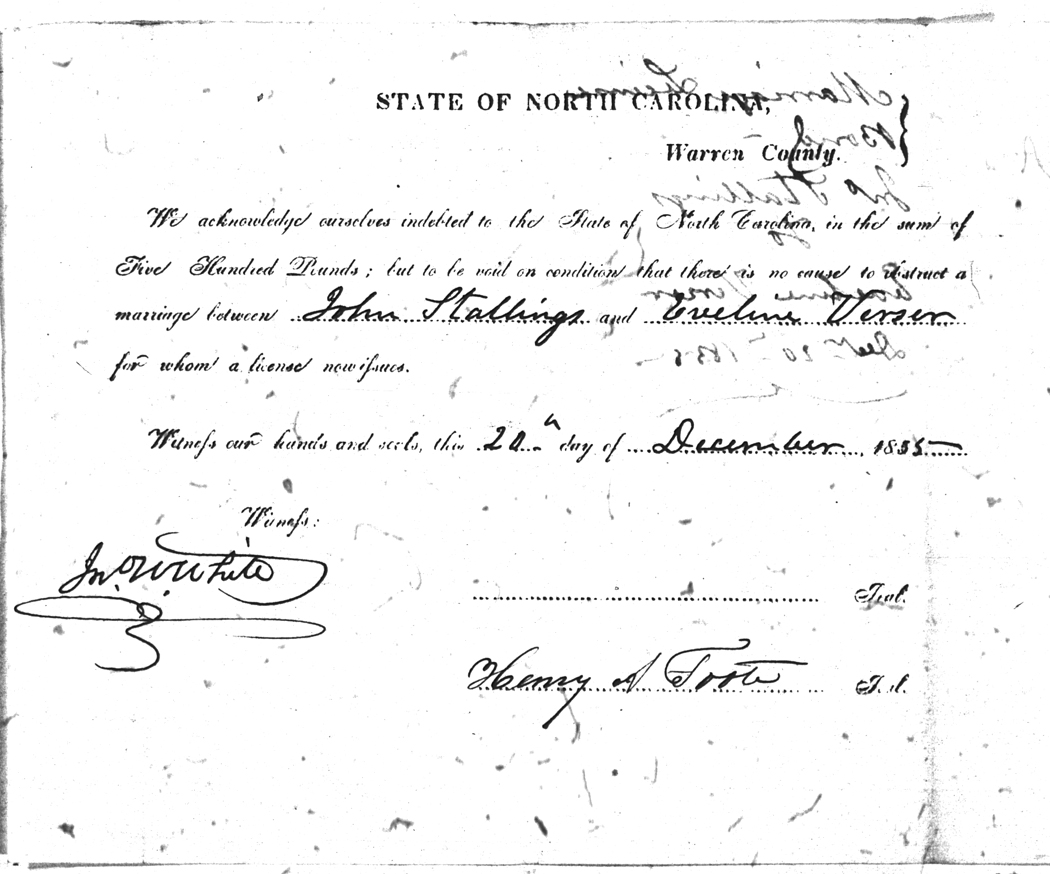 STATE OF NORTH CAROLINA,
Warren County.
We acknowledge ourselves indebted to the State of North Carolina, in the sum of
Five Hundred Pounds; but to be void on condition that there is no cause to obstruct a
marriage between John Stallings and Eveline Verser
for whom a license now issues.
Witness our hands and seals, this 20th day of December, 1855
Witness:
Jno. W. White
Seal.
Henry A Foote Seal.
Marriage License
Bond
Jno Stallings
to
Eveline Verser
Decr 20th 1855